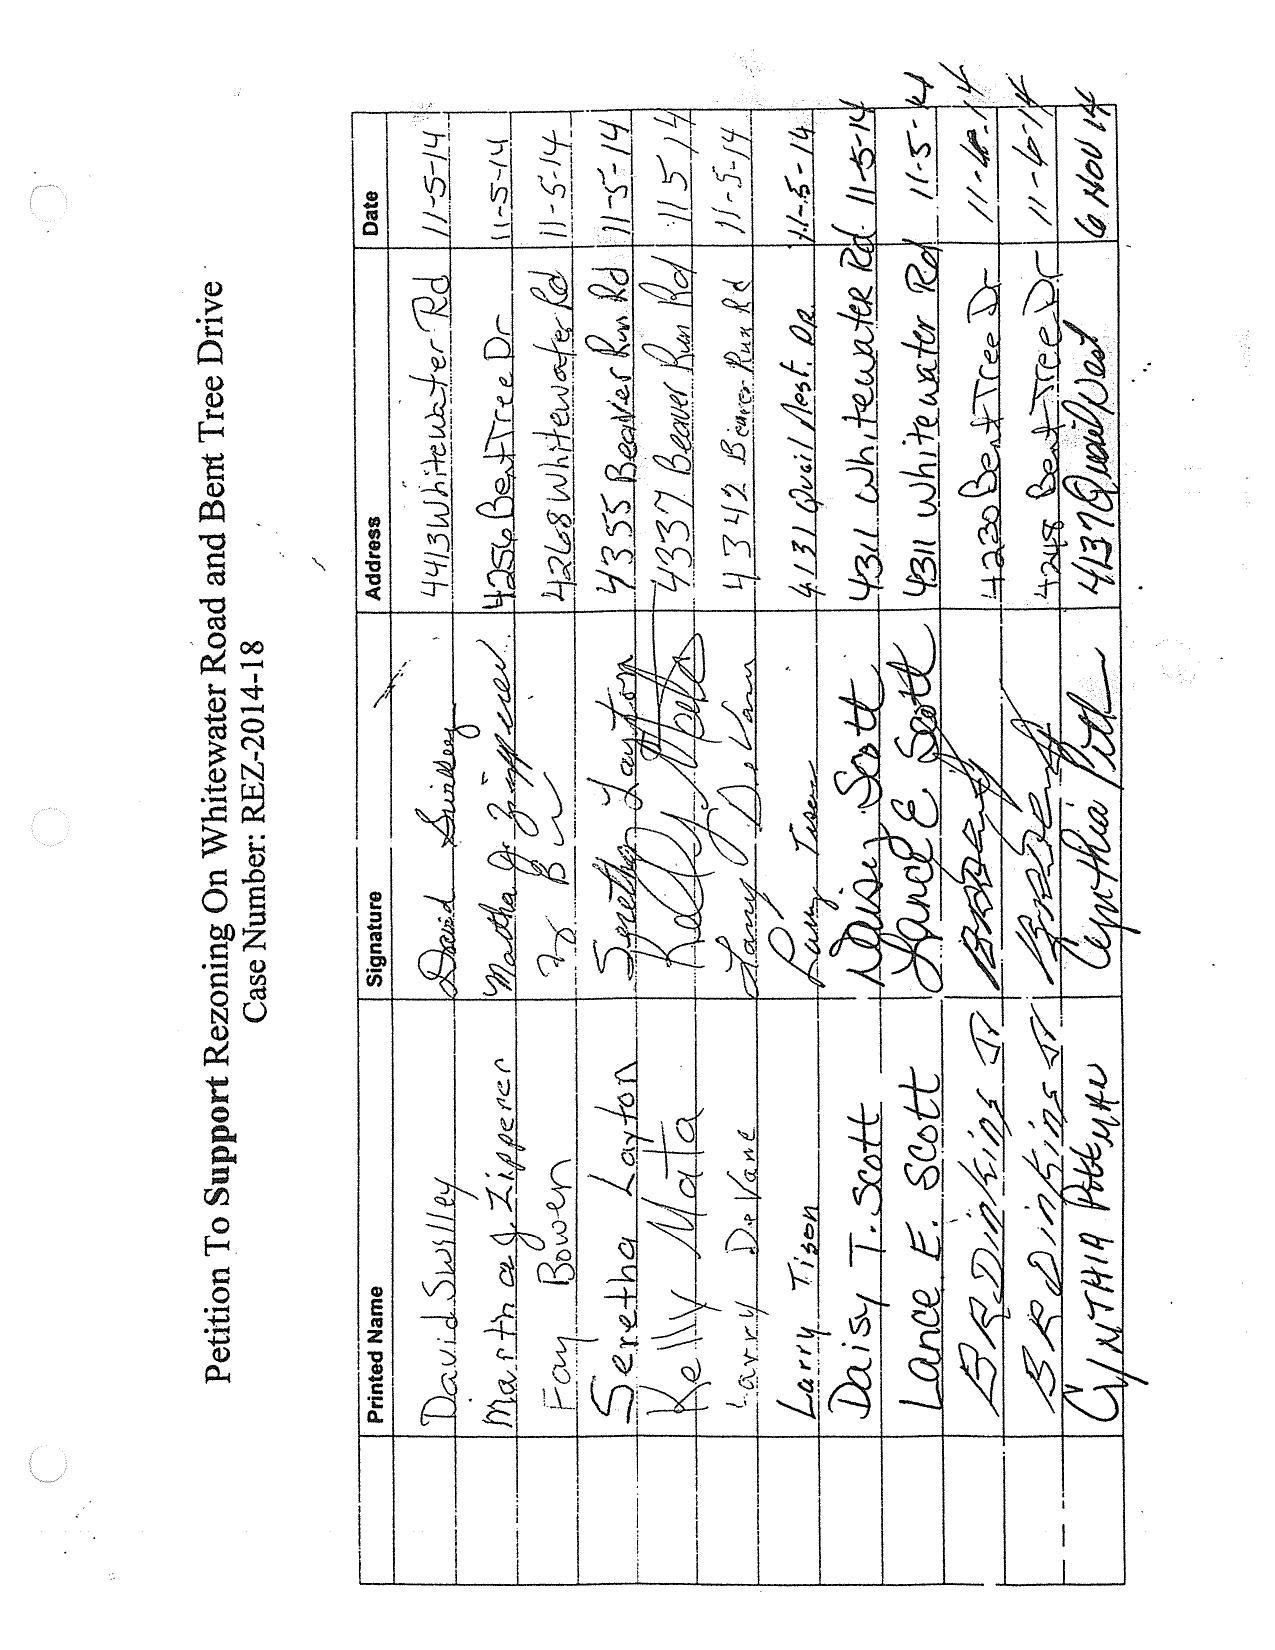 Petition To Support Rezoning On Whitewater Road and Bent Tree Drive
Case Number: REZ-2014-18
Printed Name Signature Address Date
David Swilley David Swilley 4413 Whitewater Rd 11-5-14
Martha J. Zipperer Martha J. Zipperer 4256 Bent Tree Dr 11-5-14
Fay Bowen 4268 Whitewater Rd 11-5-14
Seretha Layton Seretha Layton 4355 Beaver Run Rd 11-5-14
Kelly Mata Kelly Mata 4337 Beaver Run Rd 11 5 14
Larry DeVane Larry DeVane 4342 Beaver Run Rd 11-5-14
Larry Tison Larry Tison 4131 Quail Nest. DR. 11-5-14
Daisy T. Scott Daisy Scott 4311 Whitewater Rd. 11-5-14
Lance E. Scott Lance E Scott 4311 Whitewater Rd 11-5-14
B R Dinkins Jr 4230 Bent Tree Dr 11-6-14
B R Dinkins Jr 4248 Bent Tree Dr 11-6-14
CYNTHIA Pittman Cynthia Pitt 4137 Quail Nest 6 NOV 14